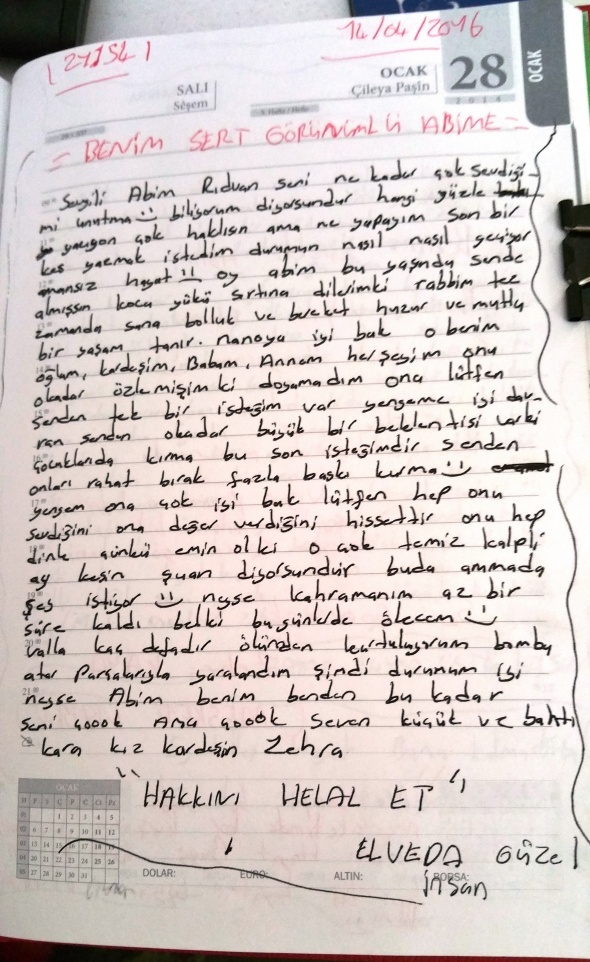 [ZYISL]
14/04/2016
SALI
Sêşem
OCAK
Çileya Paşîn
28
2014
OCAK
= BENİM SERT GÖRÜNÜMLÜ ABİME =
Sevgili Abim Rıdvan seni ne kadar çok sevdiği-
mi unutma biliyorum diyorsundur hangi yüzle
yazıyon çok haklısın ama ne yapayım son bir
kes yazmak istedim durumun nasıl nasıl geçiyor
amansız hayat oy abim bu yaşında sende
almışsın koca yükü sırtına dilerimki rabbim tez
zamanda sana bolluk ve bereket huzur ve mutlu
bir yaşam tanır. Nanoya iyi bak o benim
oğlum, kardeşim, Babam, Annem herşeyim onu
okadar özlemişimki doyamadım ona lütfen
senden tek bir isteğim var yengeme iyi dav-
ran senden okadar büyük bir beklentisi varki
çocuklarıda kırma bu son isteğimdir senden
onları rahat bırak fazla baskı kurma
yengem ona çok iyi bak lütfen hep onu
sevdiğini ona değer verdiğini hissettir onu hep
dinle çünkü emin olki o çok temiz kalpli
ay kesin şuan diyorsundur buda ammada
şey istiyor neyse kahramanım az bir
süre kaldı belki bugünlerde ölecem
valla kaç defadır ölünden kurtuluyorum bomba
atar parçalarıyla yaralandım şimdi durumum iyi
neyse Abim benim benden bu kadar
seni çoook AMA çoook seven küçük ve bahtı
kara kız kardeşin Zehra
"HAKKINI HELAL ET"
ELVEDA Güzel
insan
OCAK
DOLAR:
EURO:
ALTIN:
BORSA: